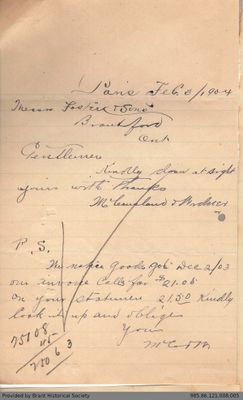 Paris Feb. 8/1904
Messrs Foster & Sons
Brantford
Ont
Gentlemen
Kindly draw at sight
yours with thanks
P.S.
We notice goods Dec 2/03
our invoice calls for $21.05
on your statement 21.50 Kindly
look it up and oblige
Yours
75108
Provided by Brant Historical Society
985.86.121.038.005